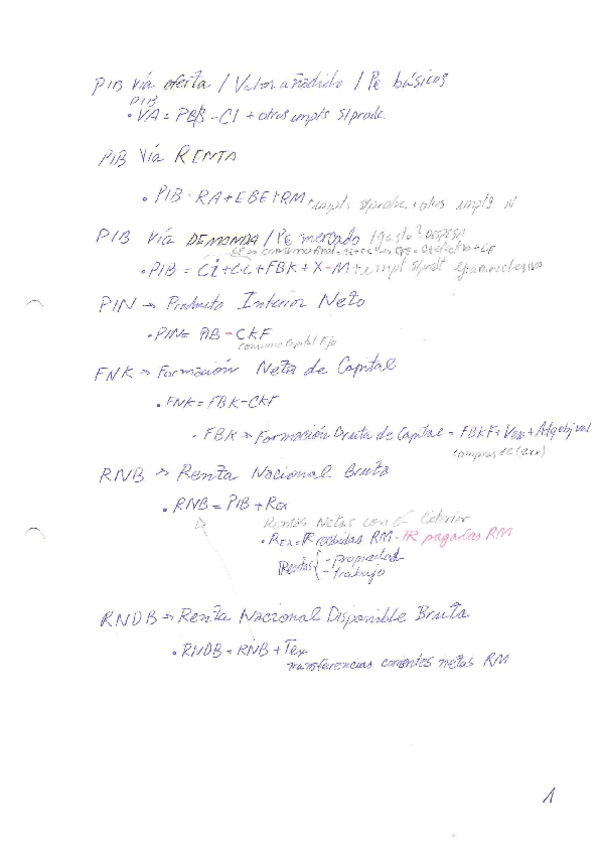 PIB vía oferta / Valor añadido / Pe básicos
PIB
• VA = PBpb - CI + otros impts s/prodc.
PIB vía RENTA
• PIB = RA + EBE + RM + impts s/prodc + otros impts
PIB vía DEMANDA / Pe mercado / gasto? DESPESA
CF → consumo final
• PIB = Ci + CC + FBK + X - M + impt s/prodt
PIN → Producto Interior Neto
• PIN = PIB - CKF
consumo Capital Fijo
FNK → Formación Neta de Capital
• FNK = FBK - CKF
• FBK → Formación Bruta de Capital = FBKF + Vex + Adq obj val
RNB → Renta Nacional Bruta
• RNB = PIB + Rex
Rentas Netas con el Exterior
• REX = R recibidas RM - R pagadas RM
Rentas { - propiedad
- trabajo
RNDB → Renta Nacional Disponible Bruta
• RNDB = RNB + Tex
Transferencias corrientes netas RM
1